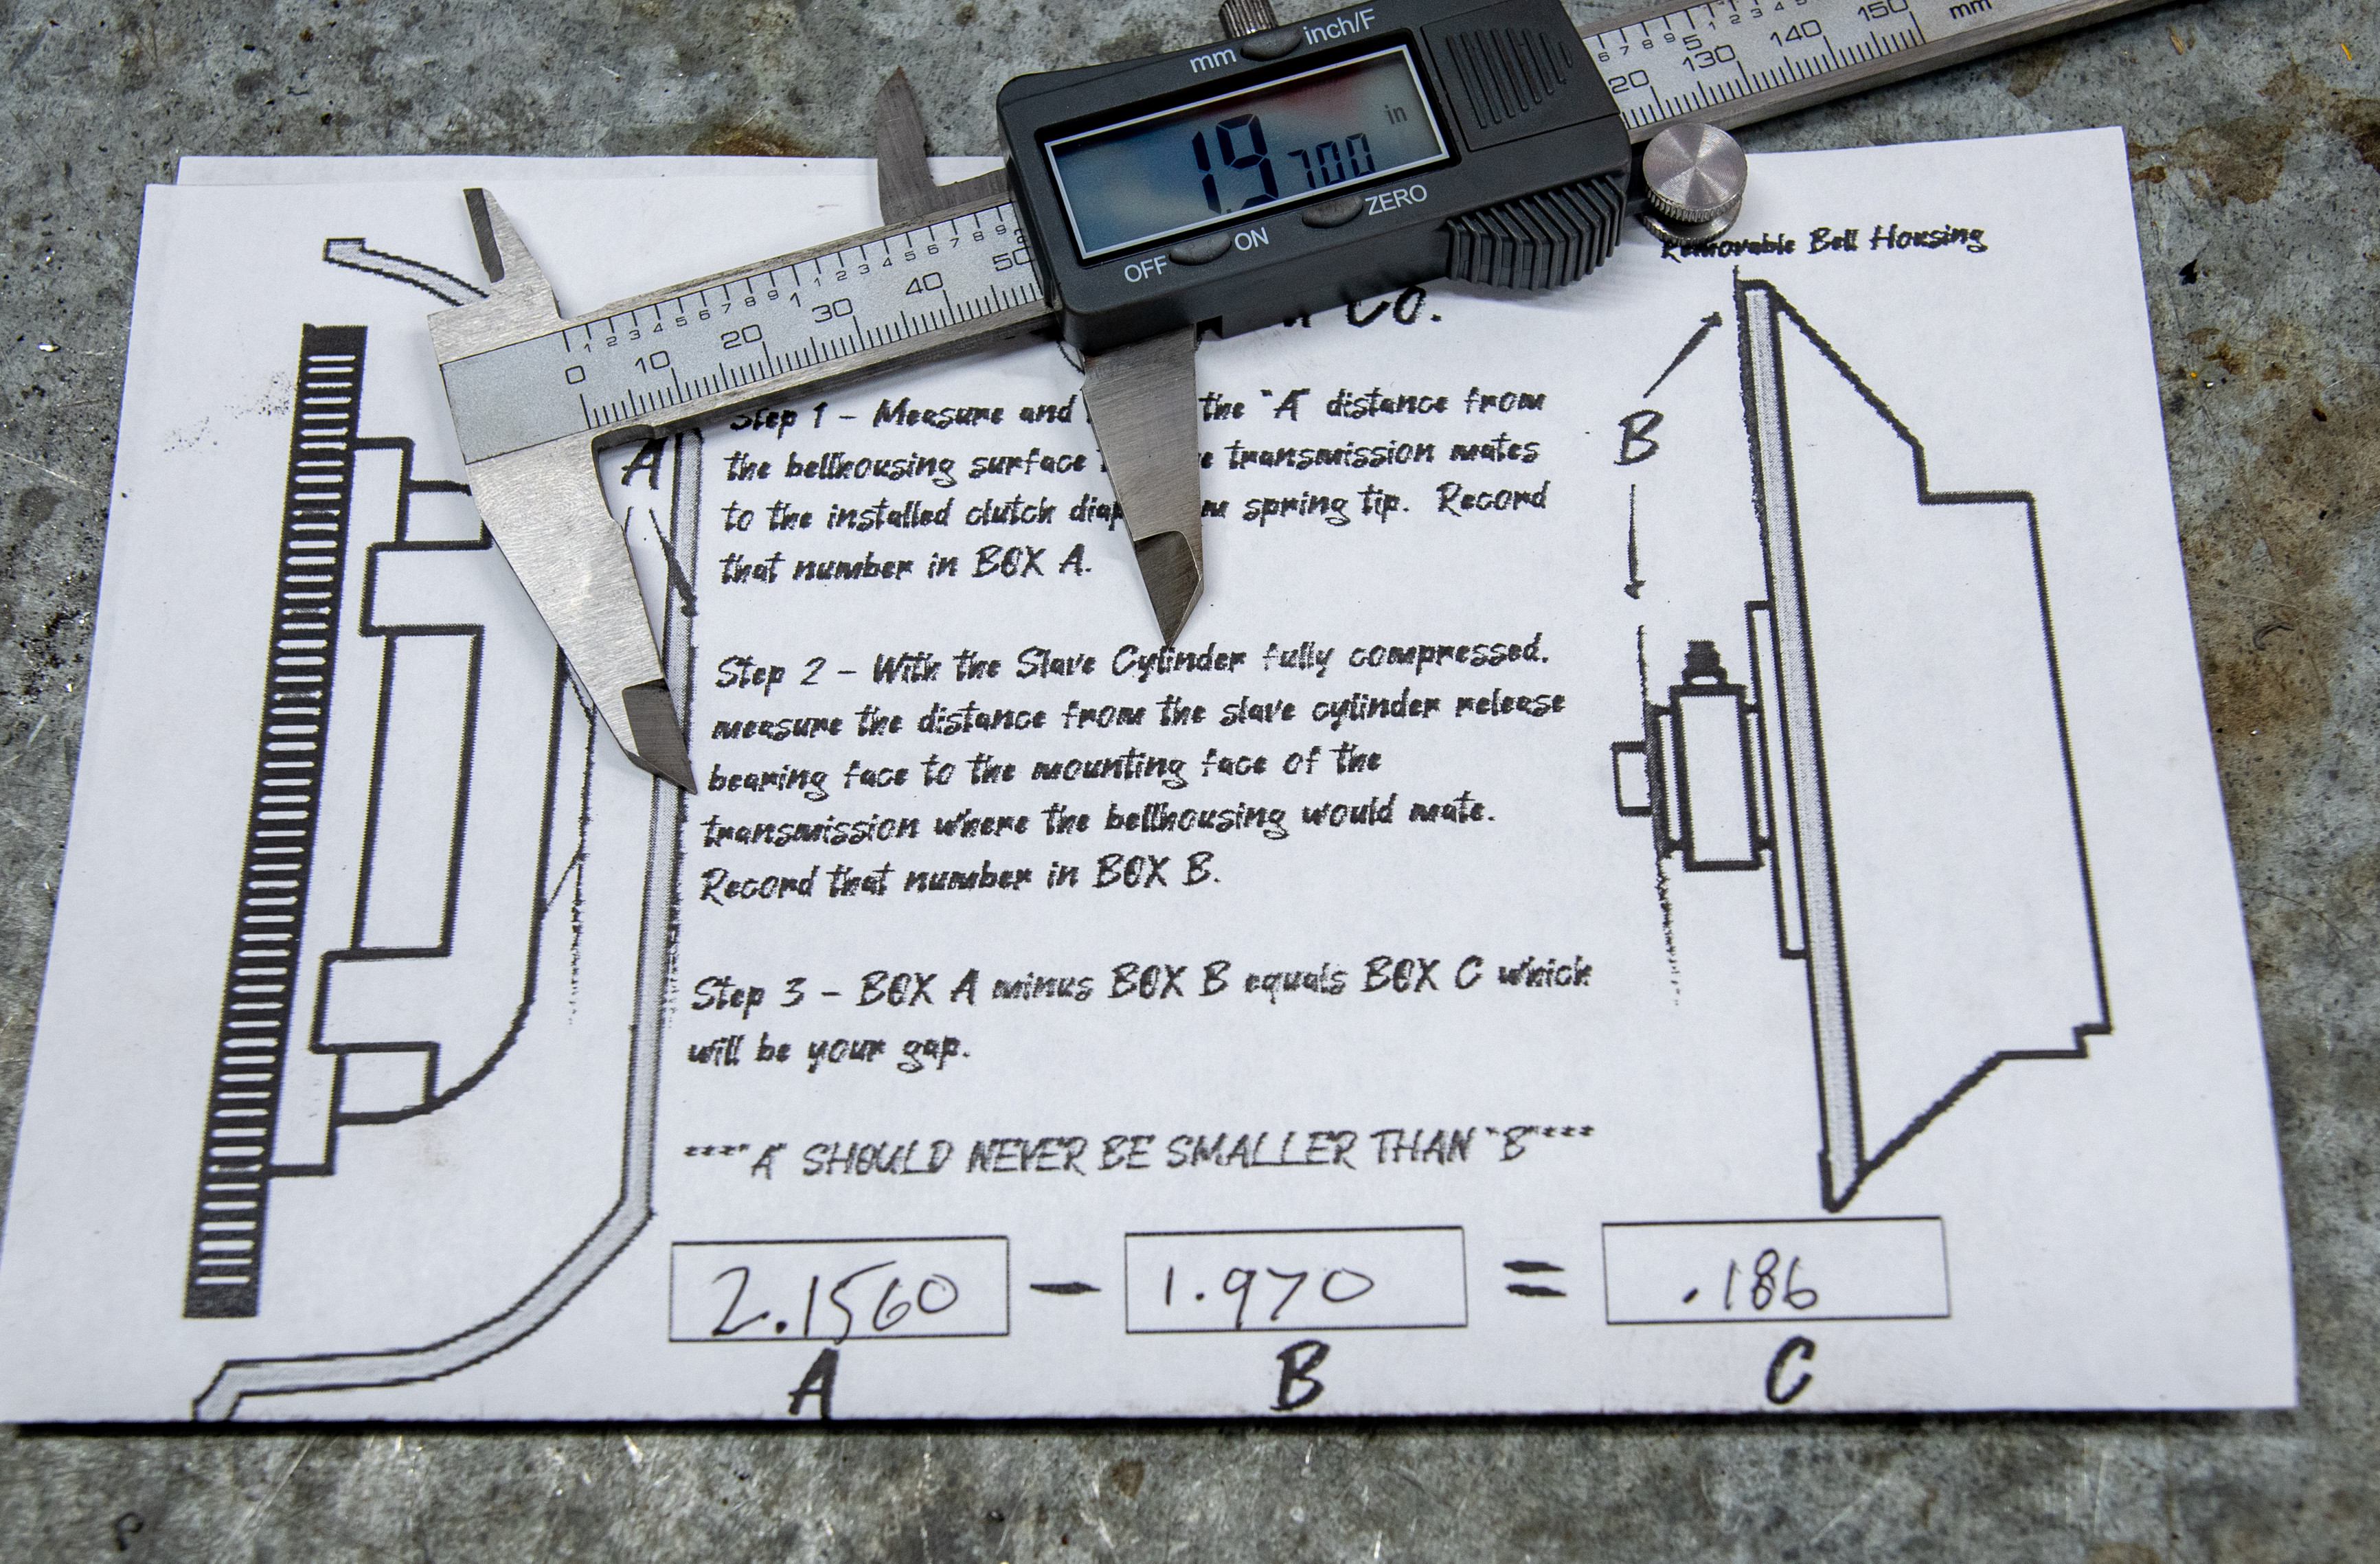 mm inch/F
1.9700 in
OFF ON ZERO
0 10 20 30 40 50
1 2 3 4 5 6 7 8 9 1 1 2 3 4 5 6 7 8 9
20 130 140 150 mm
6 7 8 9 5 1 1 2 3 4
Removable Bell Housing
Co.
A
B
Step 1 - Measure and the "A" distance from
the bellhousing surface transmission mates
to the installed clutch spring tip. Record
that number in BOX A.
Step 2 - With the Slave Cylinder fully compressed,
measure the distance from the slave cylinder release
bearing face to the mounting face of the
transmission where the bellhousing would mate.
Record that number in BOX B.
Step 3 - BOX A minus BOX B equals BOX C which
will be your gap.
****"A" SHOULD NEVER BE SMALLER THAN "B"****
2.1560 - 1.970 = .186
A B C